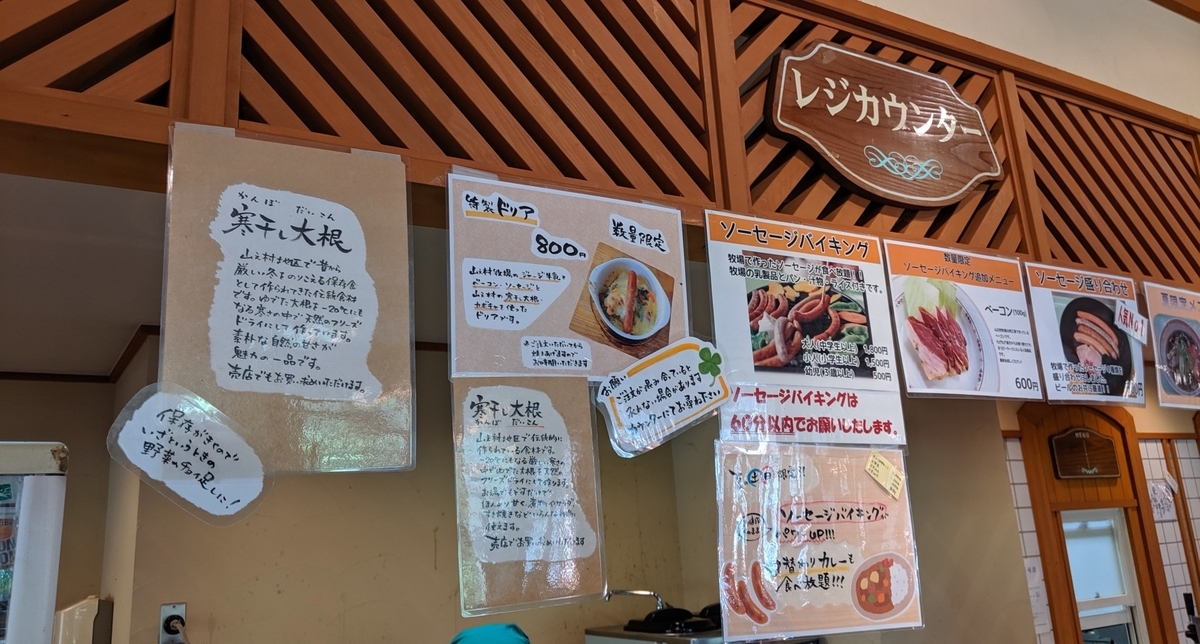 レジカウンター
かんぼ だいこん
寒干し大根
山之村地区で昔から
厳しい冬をのりこえる保存食
として作られてきた伝統食材
です。ゆでた大根を-20℃にも
なる寒さの中で天然のフリーズ
ドライにして作っています。
素朴な自然の甘さが
魅力の一品です。
売店でもお買い求めいただけます。
保存がきくので
いざというときの
野菜の不足に!
特製ドリア
800円
数量限定
山之村牧場のジャージー牛乳と
ベーコン・ソーセージと
山之村の寒干し大根
ドリアです。
お時間いただきます
お願い
ご注文が混み合っていると
カウンターにてお尋ね下さい
寒干し大根
かんぼ だいこん
山之村地区で伝統的に
作られている食材です。
-20℃にもなる厳しい寒さの
中でゆでた大根を天然の
フリーズドライにして作ります。
使えます。
売店でお買い求めいただけます
ソーセージバイキング
牧場で作ったソーセージが食べ放題!
牧場の乳製品とパン・汁物・ライス付きです。
大人(中学生以上) 1,800円
小人(小学生以上) 1,500円
幼児(3歳以上) 500円
ソーセージバイキングは
60分以内でお願いします。
土 日 限定!!
ソーセージバイキングが
パワーUP!!!
日替わりカレーも
食べ放題!!!
数量限定
ソーセージバイキング追加メニュー
ベーコン(100g)
600円
ソーセージ盛り合わせ
人気No.1
盛り合わせ
MENU